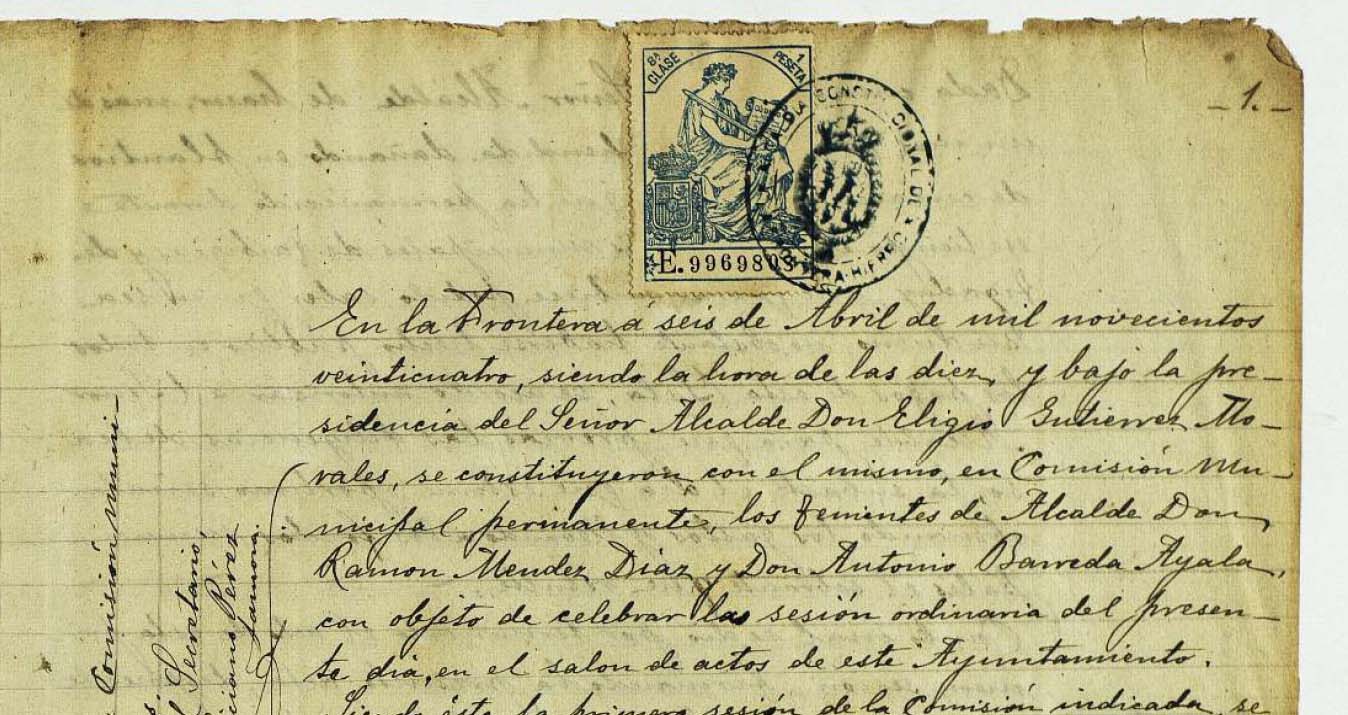 8ª CLASE
1 PESETA
-1.-
E.9969803
En la Frontera á seis de Abril de mil novecientos
veinticuatro, siendo la hora de las diez, y bajo la pre-
sidencia del Señor Alcalde Don Eligio Gutierrez Mo-
rales, se constituyeron con el mismo, en Comisión mu-
nicipal permanente, los Tenientes de Alcalde Don
Ramon Mendez Diaz y Don Antonio Barreda Ayala,
con objeto de celebrar la sesión ordinaria del presen-
te dia, en el salon de actos de este Ayuntamiento.
Siendo ésta la primera sesión de la Comisión indicada, se
Comisión muni-
Secretario,
Perez
Zamora